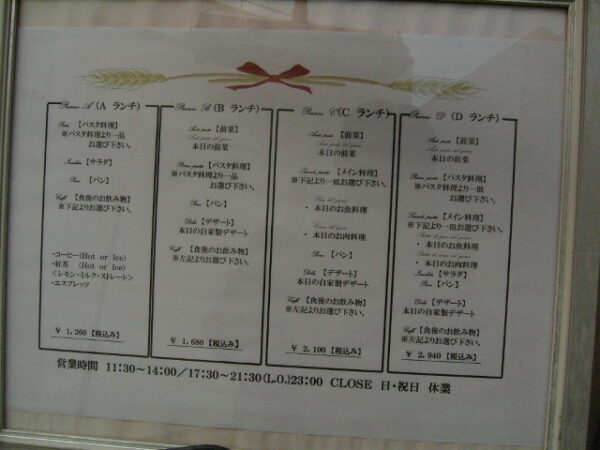 Pranzo A (A ランチ)
【パスタ料理】
※パスタ料理より一品
お選び下さい。
【サラダ】
Pane 【パン】
Caffè 【食後のお飲み物】
※下記よりお選び下さい。
・コーヒー(Hot or Ice)
・紅茶 (Hot or Ice)
<レモン・ミルク・ストレート>
・エスプレッソ
¥ 1,260【税込み】
Pranzo B (B ランチ)
【前菜】
本日の前菜
【パスタ料理】
※パスタ料理より一品
お選び下さい。
Pane 【パン】
Dolce 【デザート】
本日の自家製デザート
Caffè 【食後のお飲み物】
※左記よりお選び下さい。
¥ 1,680【税込み】
Pranzo C (C ランチ)
【前菜】
本日の前菜
【メイン料理】
※下記より一皿お選び下さい。
・本日のお魚料理
・本日のお肉料理
Pane 【パン】
Dolce 【デザート】
本日の自家製デザート
Caffè 【食後のお飲み物】
※左記よりお選び下さい。
¥ 2,100【税込み】
Pranzo D (D ランチ)
【前菜】
本日の前菜
【パスタ料理】
※パスタ料理より一皿
お選び下さい。
【メイン料理】
※下記より一皿お選び下さい。
・本日のお魚料理
・本日のお肉料理
【サラダ】
Pane 【パン】
Dolce 【デザート】
本日の自家製デザート
Caffè 【食後のお飲み物】
※左記よりお選び下さい。
¥ 2,940【税込み】
営業時間 11:30～14:00／17:30～21:30(L.O.)23:00 CLOSE 日・祝日 休業